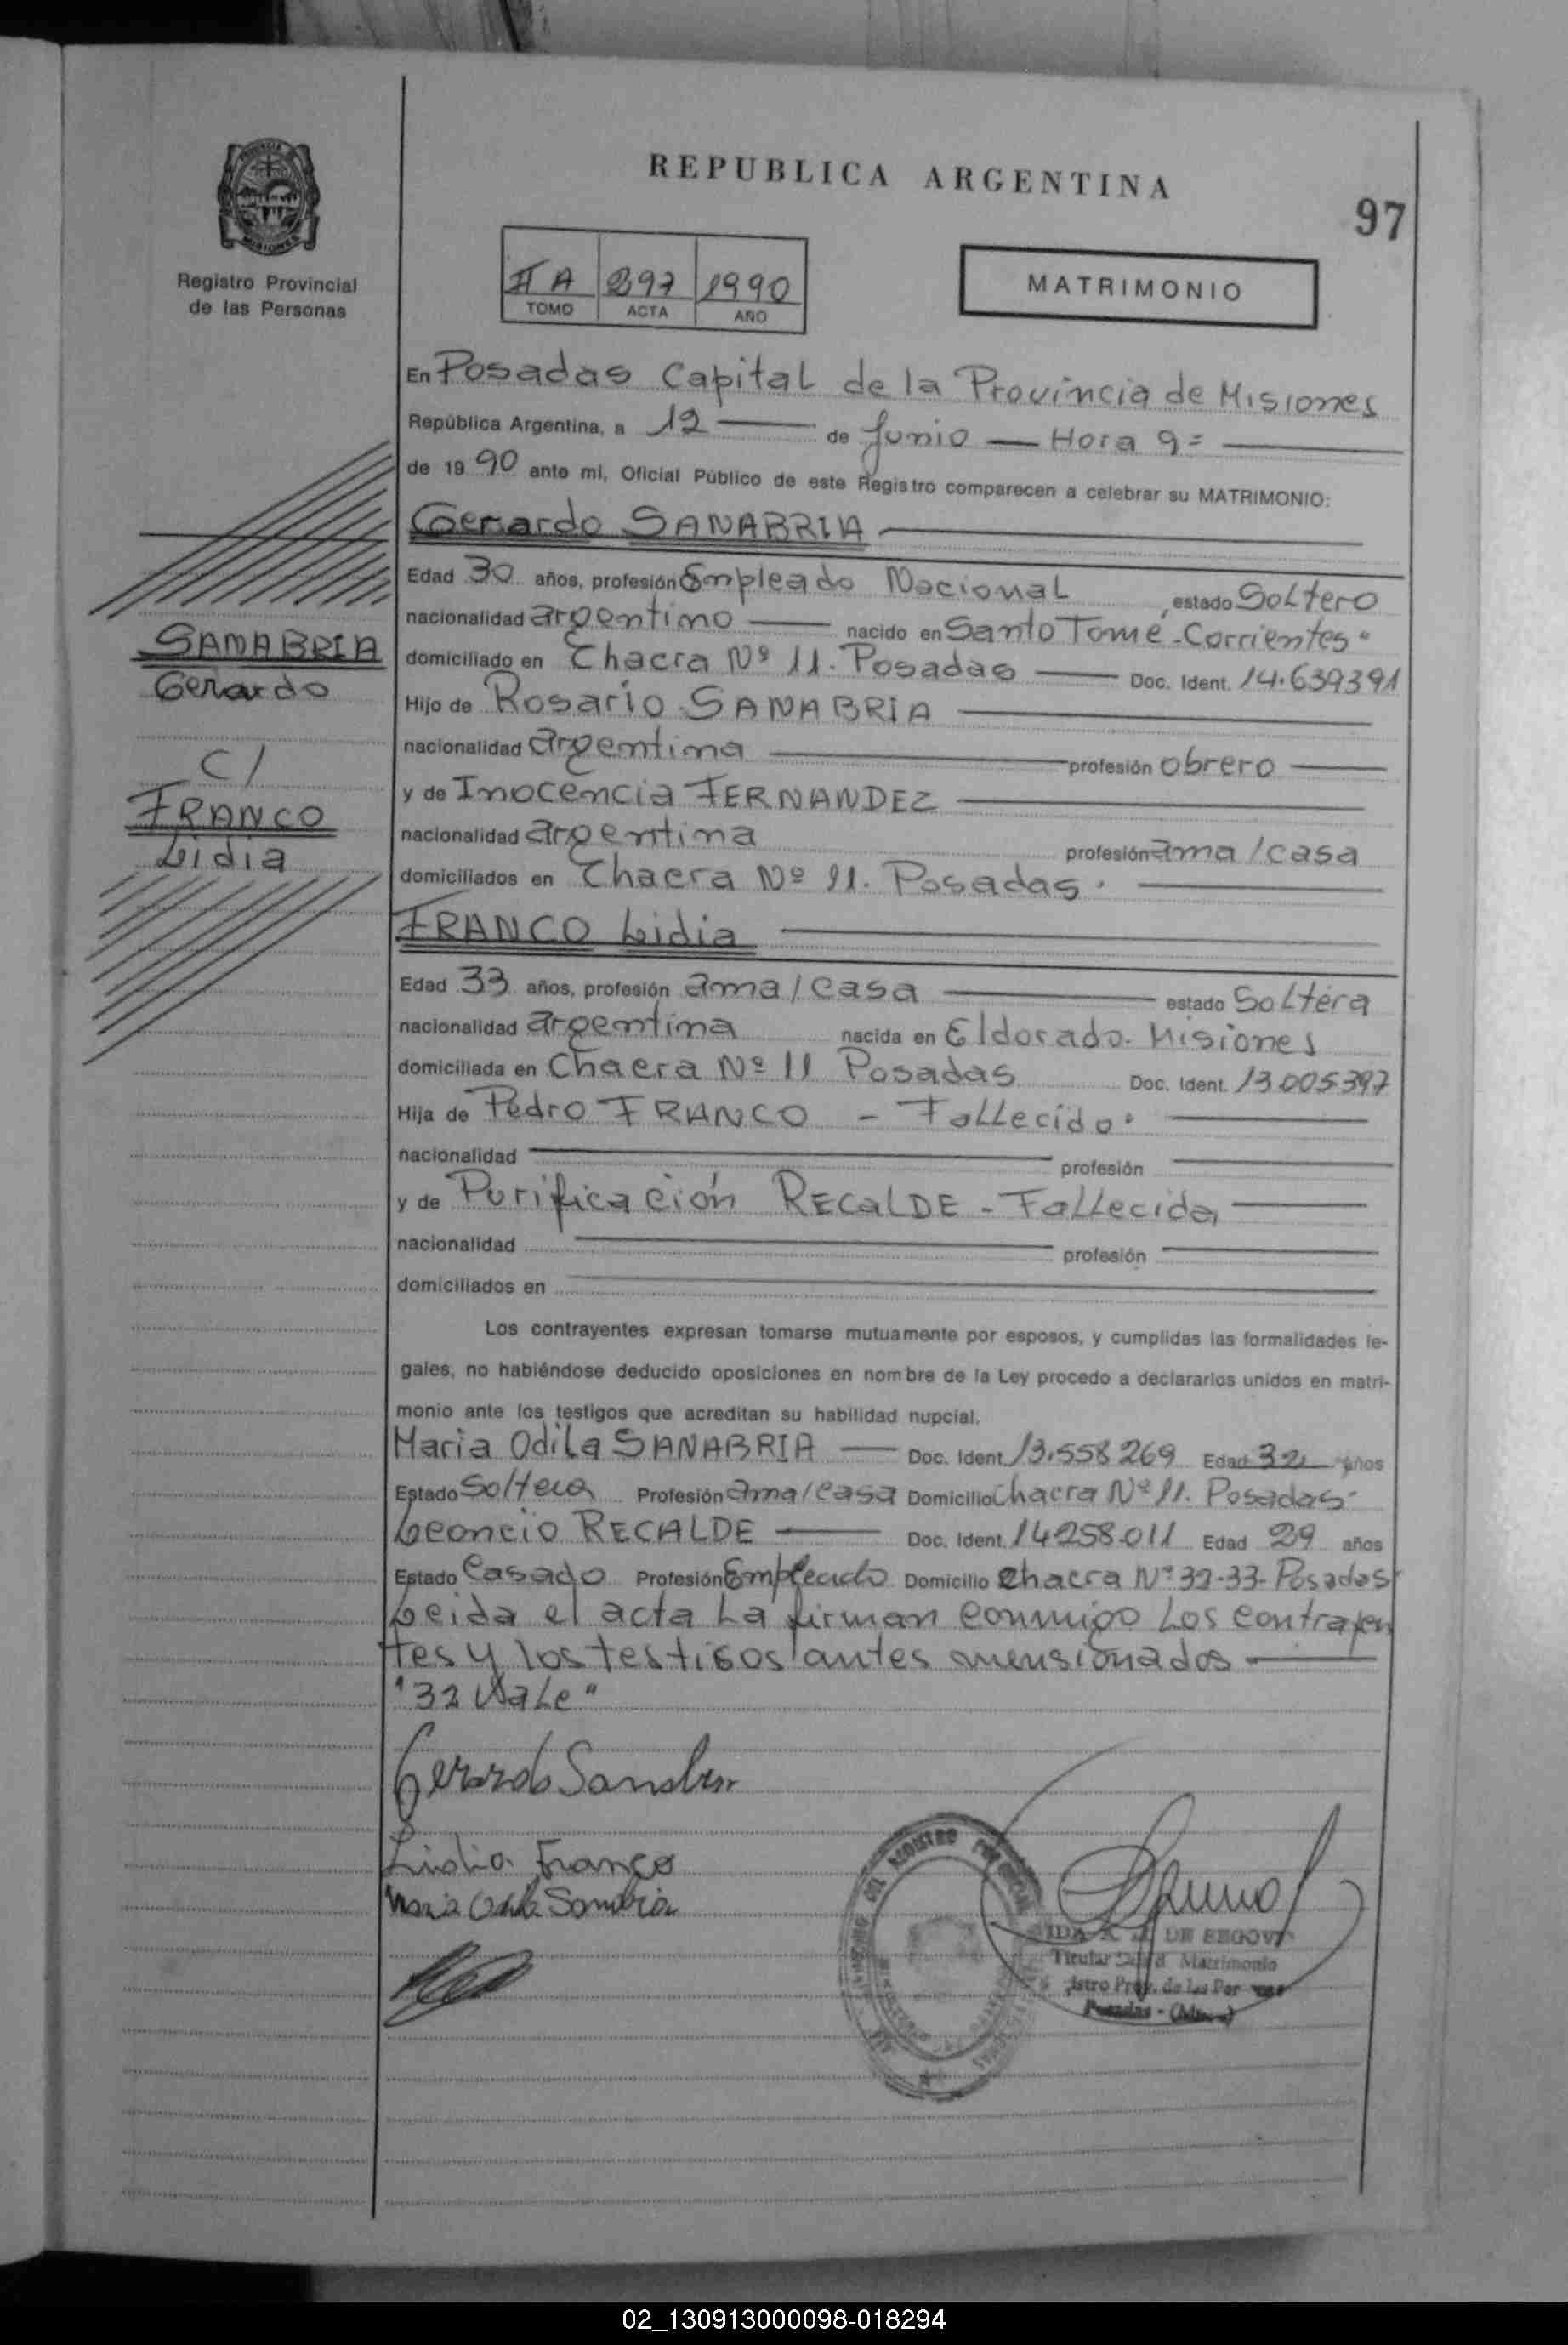 REPUBLICA ARGENTINA
97
Registro Provincial
de las Personas
II A 297 1990
TOMO ACTA AÑO
MATRIMONIO
En Posadas Capital de la Provincia de Misiones
República Argentina, a 12 de Junio — Hora 9=
de 1990 ante mí, Oficial Público de este Registro comparecen a celebrar su MATRIMONIO:
Gerardo SANABRIA
Edad 30 años, profesión Empleado Nacional, estado Soltero
nacionalidad argentino nacido en Santo Tomé-Corrientes
domiciliado en Chacra Nº 11. Posadas Doc. Ident. 14.639391
Hijo de Rosario SANABRIA
nacionalidad argentina profesión obrero
y de Inocencia FERNANDEZ
nacionalidad argentina profesión ama/casa
domiciliados en Chacra Nº 11. Posadas.
FRANCO Lidia
Edad 33 años, profesión ama/casa estado Soltera
nacionalidad argentina nacida en Eldorado-Misiones
domiciliada en Chacra Nº 11 Posadas Doc. Ident. 13.005397
Hija de Pedro FRANCO - Fallecido.
nacionalidad profesión
y de Purificación RECALDE - Fallecida
nacionalidad profesión
domiciliados en
SANABRIA
Gerardo
C/
FRANCO
Lidia
Los contrayentes expresan tomarse mutuamente por esposos, y cumplidas las formalidades le-
gales, no habiéndose deducido oposiciones en nombre de la Ley procedo a declararlos unidos en matri-
monio ante los testigos que acreditan su habilidad nupcial.
Maria Odila SANABRIA Doc. Ident. 13.558269 Edad 32 años
Estado Soltera Profesión ama/casa Domicilio Chacra Nº 11. Posadas
Leoncio RECALDE Doc. Ident. 14258.011 Edad 29 años
Estado Casado Profesión Empleado Domicilio Chacra Nº 32-33-Posadas
Leida el acta La firman conmigo Los contrayen
tes y los testigos antes mensionados
"32 Vale"
Gerardo Sanabria
Lidia Franco
Maria Odila Sanabria
DE SEGOVI
Titular Matrimonio
istro Prov. de las Per
Posadas -
02_130913000098-018294